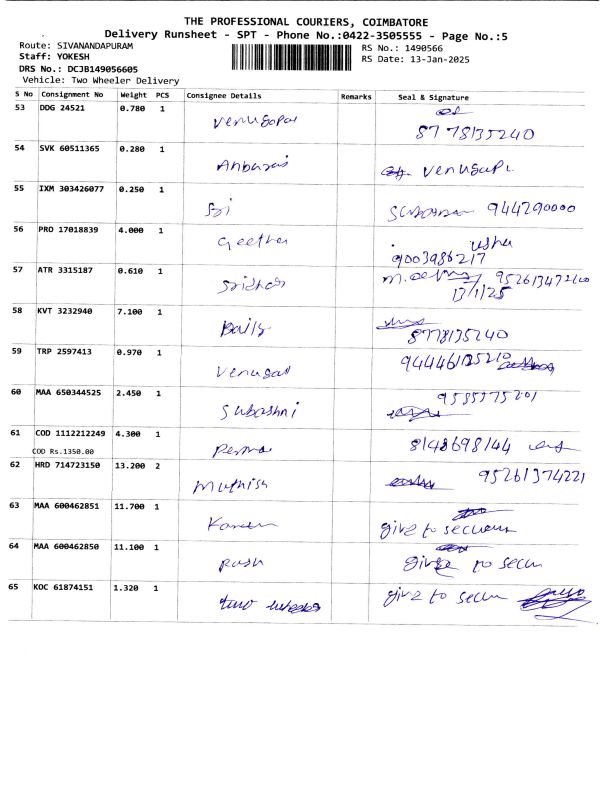 THE PROFESSIONAL COURIERS, COIMBATORE
Delivery Runsheet - SPT - Phone No.:0422-3505555 - Page No.:5
Route: SIVANANDAPURAM
RS No.: 1490566
Staff: YOKESH
RS Date: 13-Jan-2025
DRS No.: DCJB149056605
Vehicle: Two Wheeler Delivery
S No Consignment No Weight PCS Consignee Details Remarks Seal & Signature
53 DDG 24521 0.780 1 Venugopal
8778135240
54 SVK 60511365 0.280 1 Anbarasi Venugupi
55 IXM 303426077 0.250 1 Sri 944290000
56 PRO 17018839 4.000 1 Geetha usha
9003986217
57 ATR 3315187 0.610 1 Sridhar
13/1/25
58 KVT 3232940 7.100 1
8778135240
59 TRP 2597413 0.970 1 Venugal
60 MAA 650344525 2.450 1 Subashni 9585375201
61 COD 1112212249 4.300 1 8148698144
COD Rs.1350.00
62 HRD 714723150 13.200 2 95261374221
63 MAA 600462851 11.700 1 give to
64 MAA 600462850 11.100 1 Rash give to secu
65 KOC 61874151 1.320 1 two give to secu